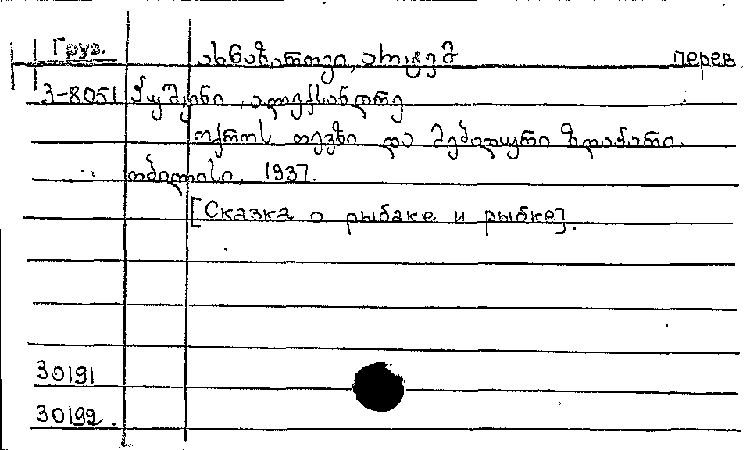 Груз. ახნაზაროვი, არტემ перев.
3-8051 პუშკინი, ალექსანდრე
ოქროს თევზი და მებადური ზღაპარი.
თბილისი. 1937.
[Сказка о рыбаке и рыбке].
30191
30192.